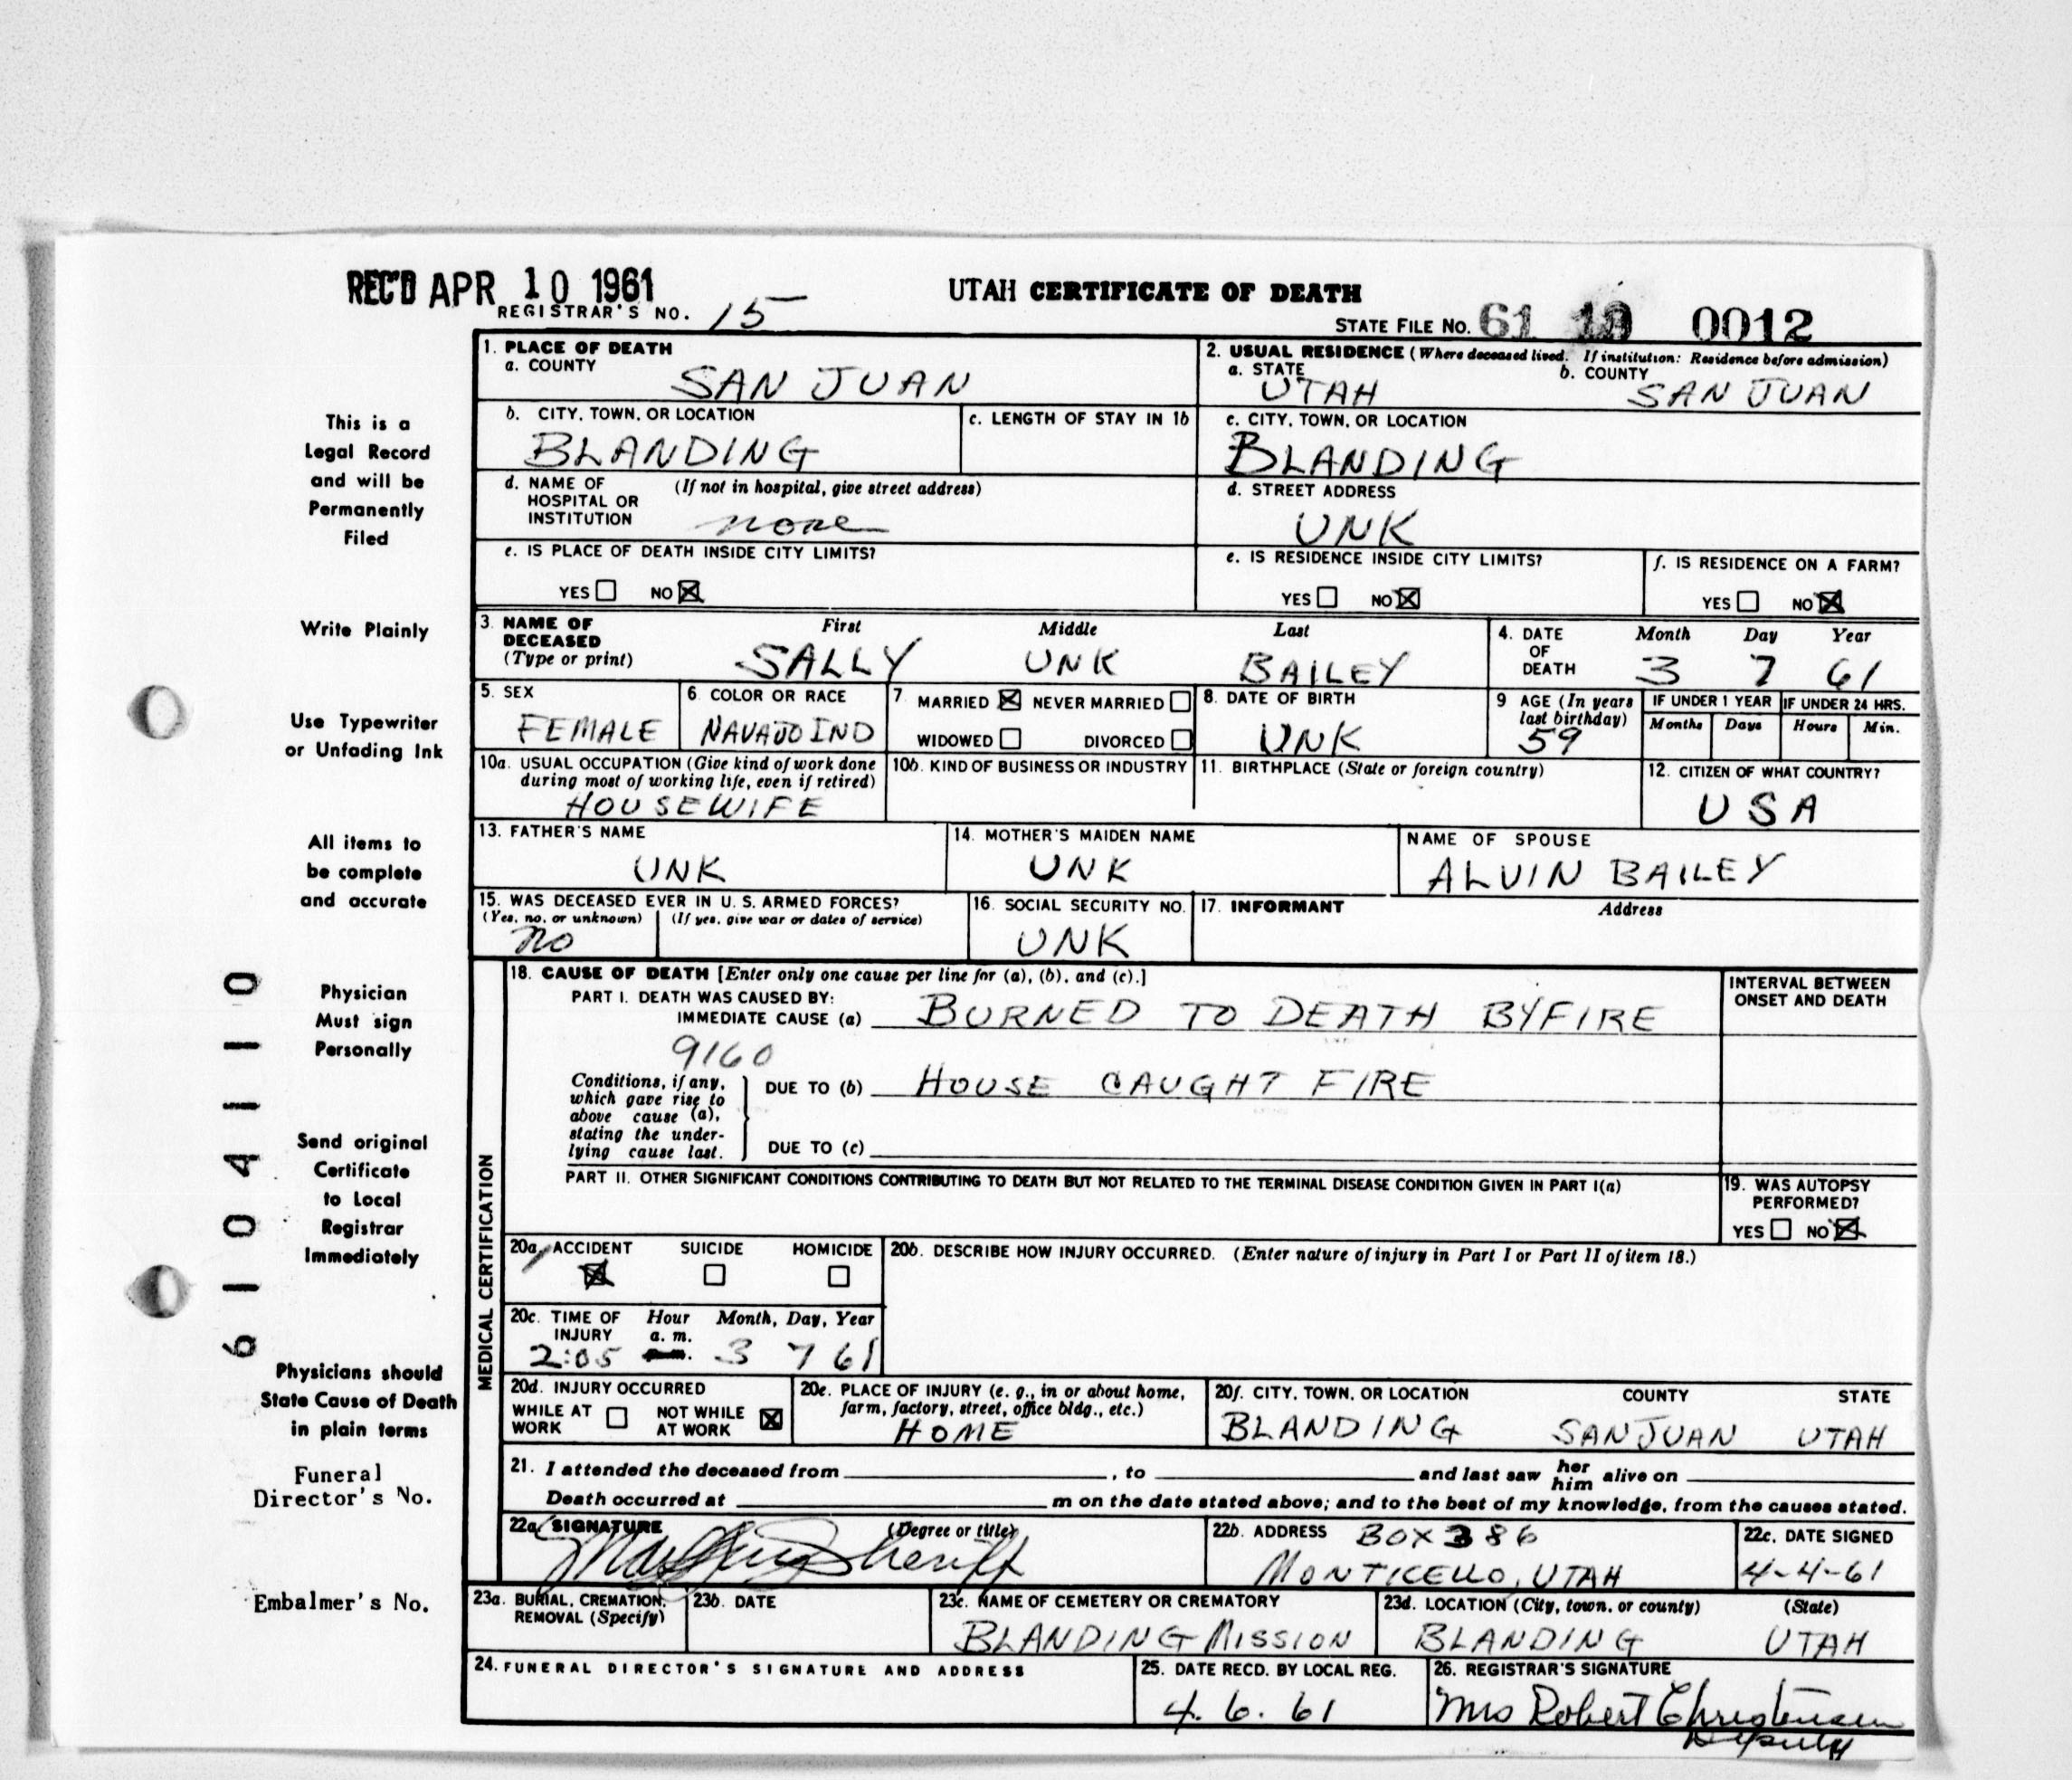 REC'D APR 10 1961
UTAH CERTIFICATE OF DEATH
REGISTRAR'S NO. 15
STATE FILE NO. 61 0012
1. PLACE OF DEATH
a. COUNTY
SAN JUAN
2. USUAL RESIDENCE (Where deceased lived. If institution: Residence before admission)
a. STATE b. COUNTY
UTAH SAN JUAN
b. CITY, TOWN, OR LOCATION
BLANDING
c. LENGTH OF STAY IN 1b
c. CITY, TOWN, OR LOCATION
BLANDING
d. NAME OF (If not in hospital, give street address)
HOSPITAL OR
INSTITUTION none
d. STREET ADDRESS
UNK
e. IS PLACE OF DEATH INSIDE CITY LIMITS?
YES NO
e. IS RESIDENCE INSIDE CITY LIMITS?
YES NO
f. IS RESIDENCE ON A FARM?
YES NO
3. NAME OF First Middle Last
DECEASED
(Type or print) SALLY UNK BAILEY
4. DATE Month Day Year
OF
DEATH 3 7 61
5. SEX
FEMALE
6. COLOR OR RACE
NAVAJO IND
7. MARRIED NEVER MARRIED
WIDOWED DIVORCED
8. DATE OF BIRTH
UNK
9 AGE (In years
last birthday)
59
IF UNDER 1 YEAR
Months Days
IF UNDER 24 HRS.
Hours Min.
10a. USUAL OCCUPATION (Give kind of work done
during most of working life, even if retired)
HOUSEWIFE
10b. KIND OF BUSINESS OR INDUSTRY
11. BIRTHPLACE (State or foreign country)
12. CITIZEN OF WHAT COUNTRY?
USA
13. FATHER'S NAME
UNK
14. MOTHER'S MAIDEN NAME
UNK
NAME OF SPOUSE
ALVIN BAILEY
15. WAS DECEASED EVER IN U. S. ARMED FORCES?
(Yes, no, or unknown) (If yes, give war or dates of service)
no
16. SOCIAL SECURITY NO.
UNK
17. INFORMANT Address
MEDICAL CERTIFICATION
18. CAUSE OF DEATH [Enter only one cause per line for (a), (b), and (c).]
PART I. DEATH WAS CAUSED BY:
IMMEDIATE CAUSE (a) BURNED TO DEATH BY FIRE
INTERVAL BETWEEN
ONSET AND DEATH
9160
Conditions, if any,
which gave rise to
above cause (a),
stating the under-
lying cause last.
DUE TO (b) HOUSE CAUGHT FIRE
DUE TO (c)
PART II. OTHER SIGNIFICANT CONDITIONS CONTRIBUTING TO DEATH BUT NOT RELATED TO THE TERMINAL DISEASE CONDITION GIVEN IN PART I(a)
19. WAS AUTOPSY
PERFORMED?
YES NO
20a. ACCIDENT SUICIDE HOMICIDE
20b. DESCRIBE HOW INJURY OCCURRED. (Enter nature of injury in Part I or Part II of item 18.)
20c. TIME OF Hour Month, Day, Year
INJURY a. m.
2:05 3 7 61
20d. INJURY OCCURRED
WHILE AT NOT WHILE
WORK AT WORK
20e. PLACE OF INJURY (e. g., in or about home,
farm, factory, street, office bldg., etc.)
HOME
20f. CITY, TOWN, OR LOCATION COUNTY STATE
BLANDING SAN JUAN UTAH
21. I attended the deceased from , to and last saw her him alive on
Death occurred at m on the date stated above; and to the best of my knowledge, from the causes stated.
22a. SIGNATURE (Degree or title)
Sheriff
22b. ADDRESS BOX 386
MONTICELLO, UTAH
22c. DATE SIGNED
4-4-61
23a. BURIAL, CREMATION,
REMOVAL (Specify)
23b. DATE
23c. NAME OF CEMETERY OR CREMATORY
BLANDING MISSION
23d. LOCATION (City, town, or county) (State)
BLANDING UTAH
24. FUNERAL DIRECTOR'S SIGNATURE AND ADDRESS
25. DATE RECD. BY LOCAL REG.
4. 6. 61
26. REGISTRAR'S SIGNATURE
Mrs Robert Christensen
Deputy
This is a
Legal Record
and will be
Permanently
Filed
Write Plainly
Use Typewriter
or Unfading Ink
All items to
be complete
and accurate
Physician
Must sign
Personally
Send original
Certificate
to Local
Registrar
Immediately
Physicians should
State Cause of Death
in plain terms
Funeral
Director's No.
Embalmer's No.
61 04 110